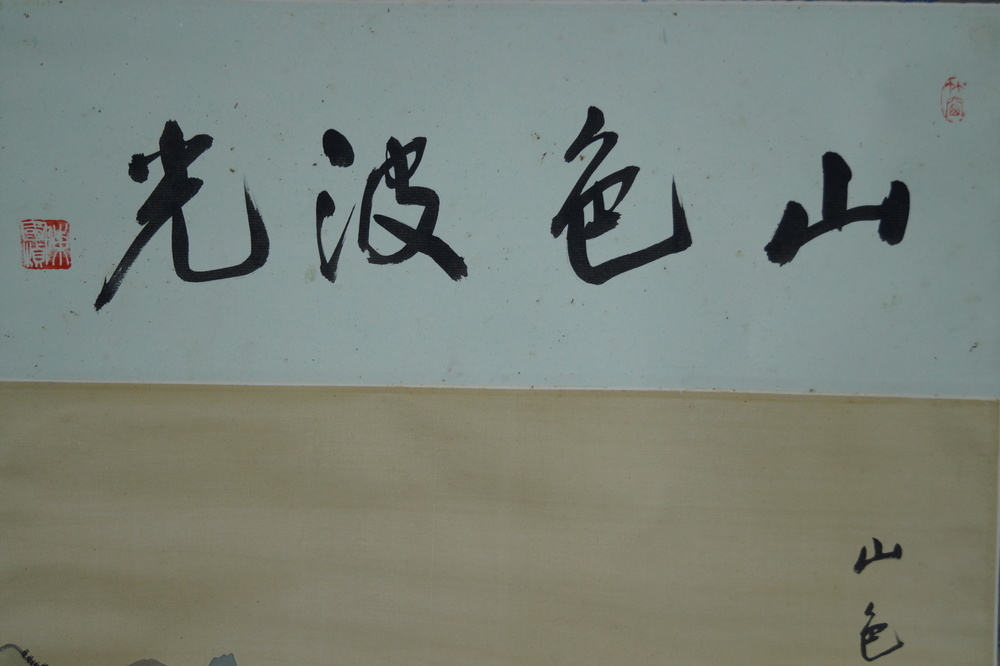 山色波光
山色